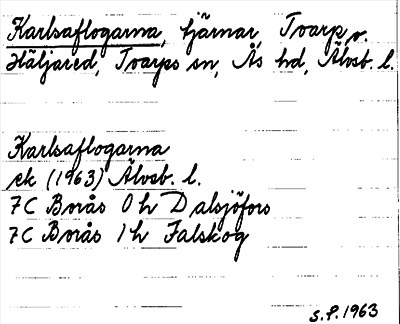 Karlsaflogarna, tjärnar, Tvarp v.
Häljared, Tvarps sn, Ås hd, Älvsb. l.
Karlsaflogarna
ek (1963) Älvsb. l.
7C Borås 0 h Dalsjöfors
7C Borås 1 h Falskog
S.P. 1963